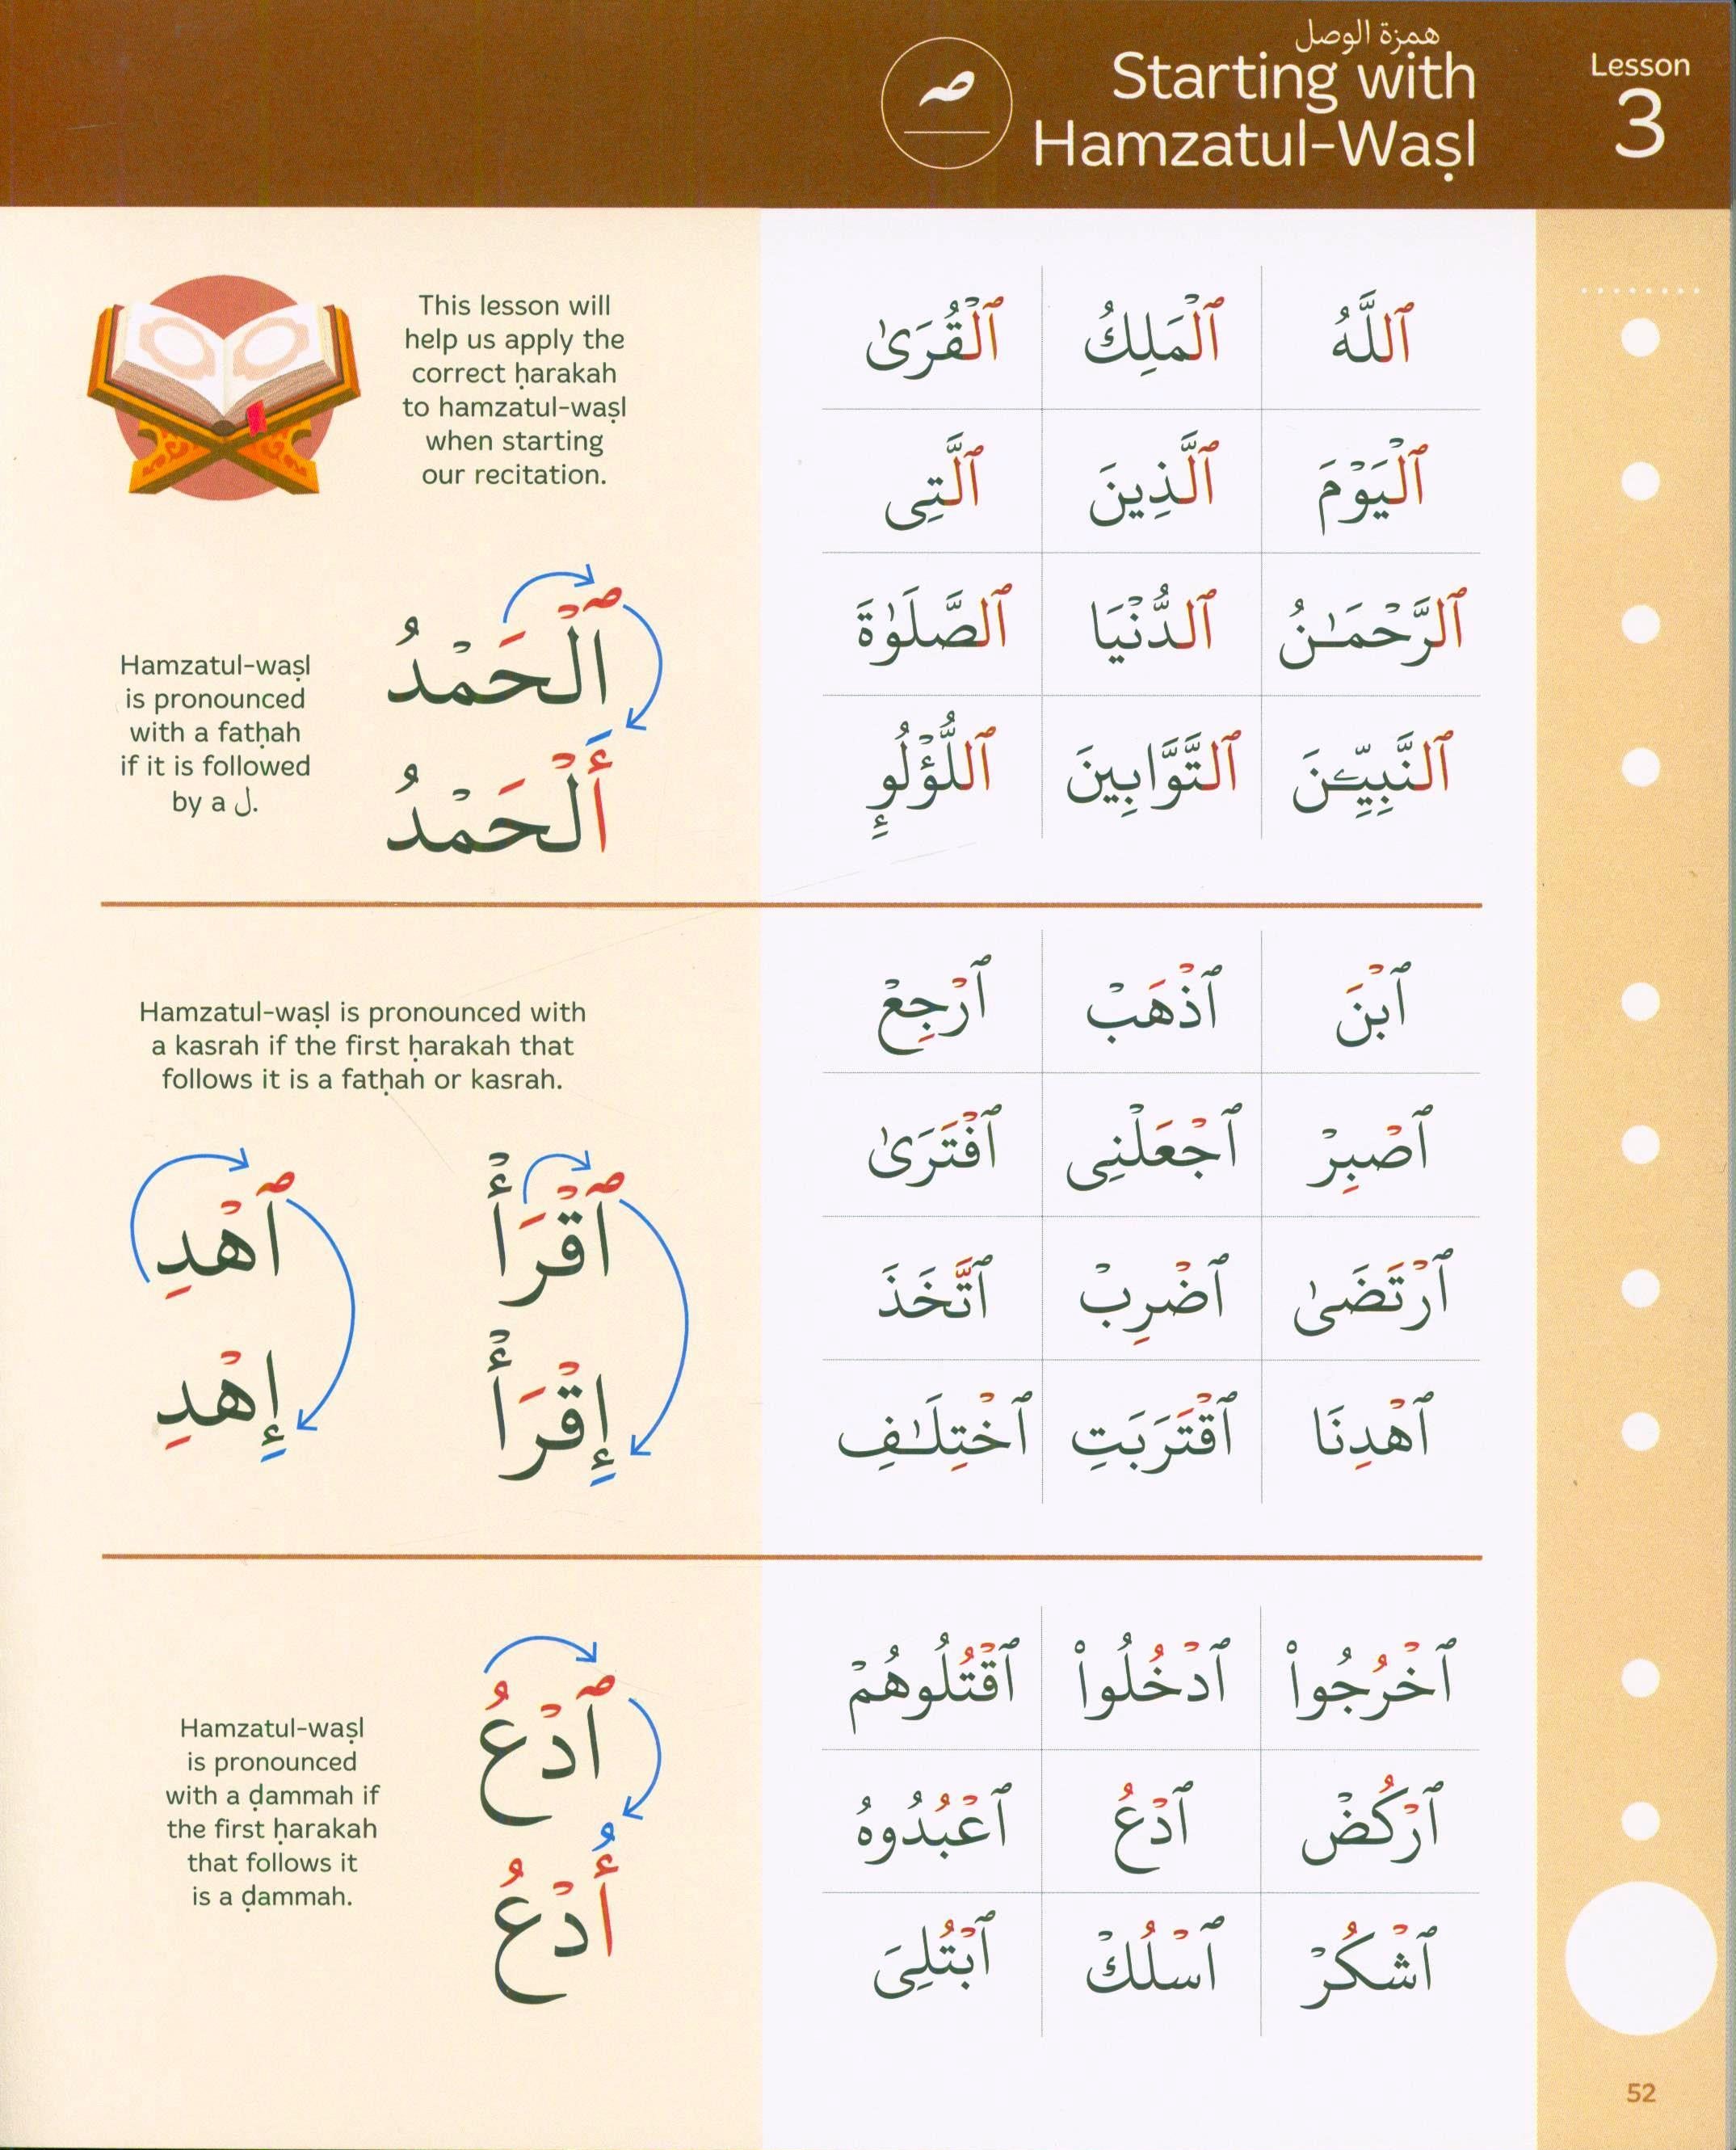 همزة الوصل
Starting with
Hamzatul-Waṣl
Lesson
3
This lesson will
help us apply the
correct ḥarakah
to hamzatul-waṣl
when starting
our recitation.
ٱللَّهُ ٱلْمَلِكُ ٱلْقُرَىٰ
ٱلْيَوْمَ ٱلَّذِينَ ٱلَّتِى
ٱلرَّحْمَـٰنُ ٱلدُّنْيَا ٱلصَّلَوٰةَ
ٱلنَّبِيِّـۧنَ ٱلتَّوَّابِينَ ٱللُّؤْلُوِٕ
Hamzatul-waṣl
is pronounced
with a fatḥah
if it is followed
by a ل.
ٱلْحَمْدُ
أَلْحَمْدُ
Hamzatul-waṣl is pronounced with
a kasrah if the first ḥarakah that
follows it is a fatḥah or kasrah.
ٱقْرَأْ ٱهْدِ
إِقْرَأْ إِهْدِ
ٱبْنَ ٱذْهَبْ ٱرْجِعْ
ٱصْبِرْ ٱجْعَلْنِى ٱفْتَرَىٰ
ٱرْتَضَىٰ ٱضْرِبْ ٱتَّخَذَ
ٱهْدِنَا ٱقْتَرَبَتِ ٱخْتِلَـٰفِ
Hamzatul-waṣl
is pronounced
with a ḍammah if
the first ḥarakah
that follows it
is a ḍammah.
ٱدْعُ
أُدْعُ
ٱخْرُجُوا۟ ٱدْخُلُوا۟ ٱقْتُلُوهُمْ
ٱرْكُضْ ٱدْعُ ٱعْبُدُوهُ
ٱشْكُرْ ٱسْلُكْ ٱبْتُلِىَ
52